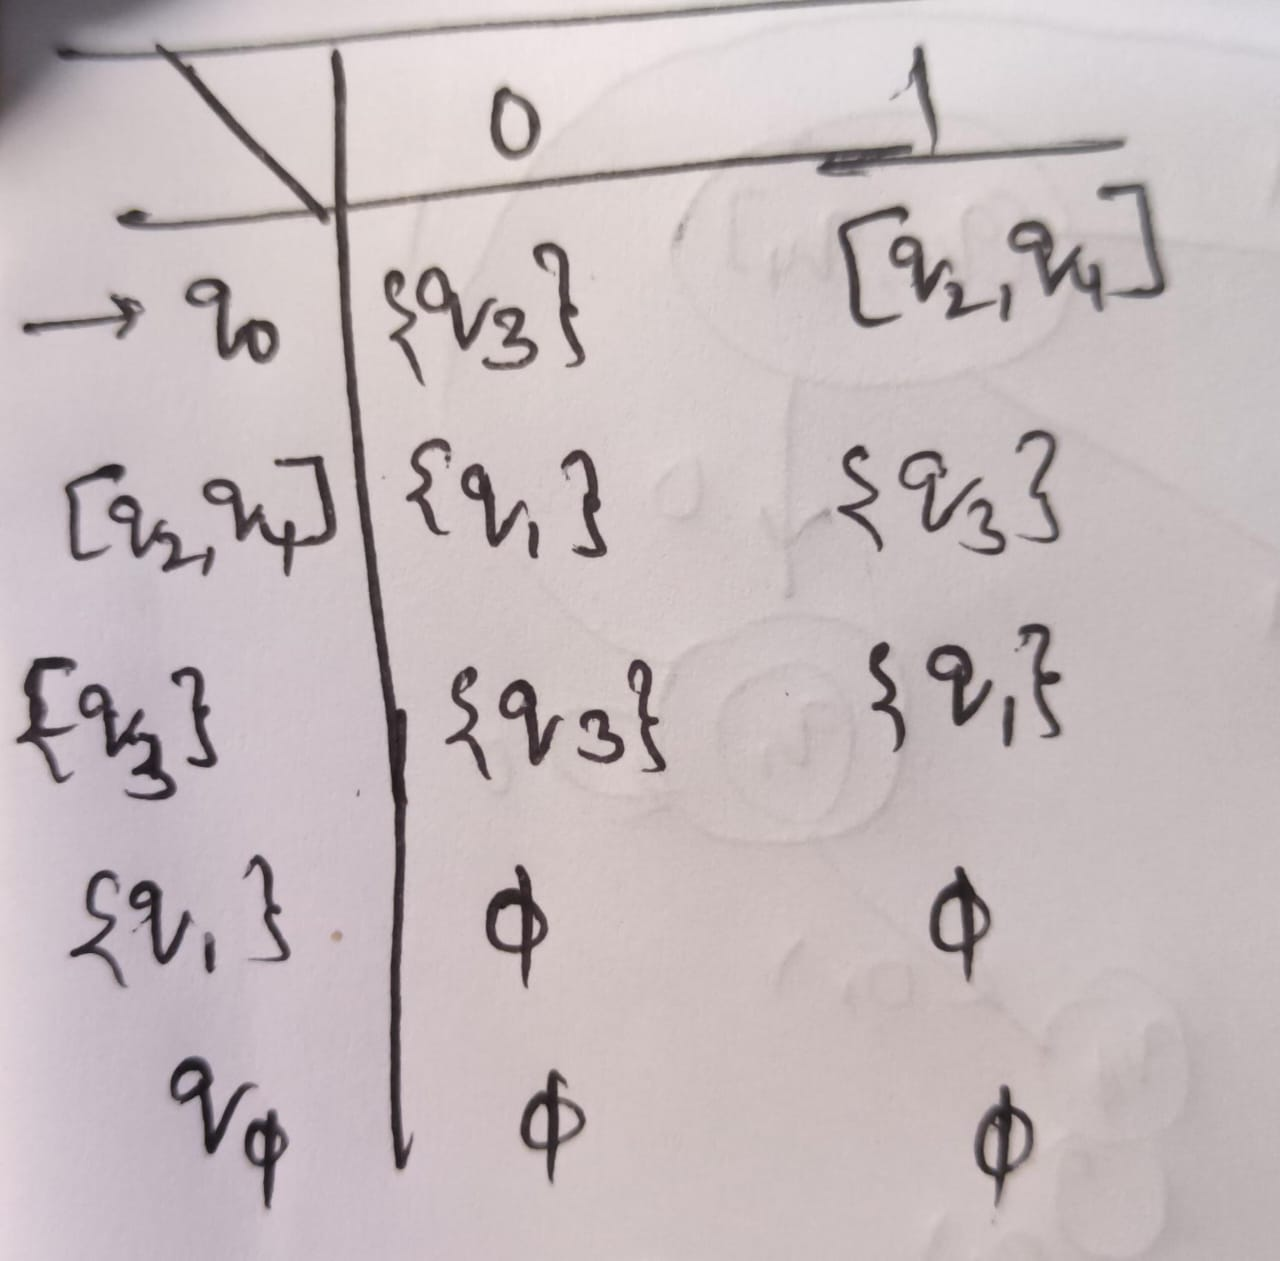 0 1
→ q0 {q3} [q2, q4]
[q2, q4] {q1} {q3}
{q3} {q3} {q1}
{q1} ϕ ϕ
qϕ ϕ ϕ